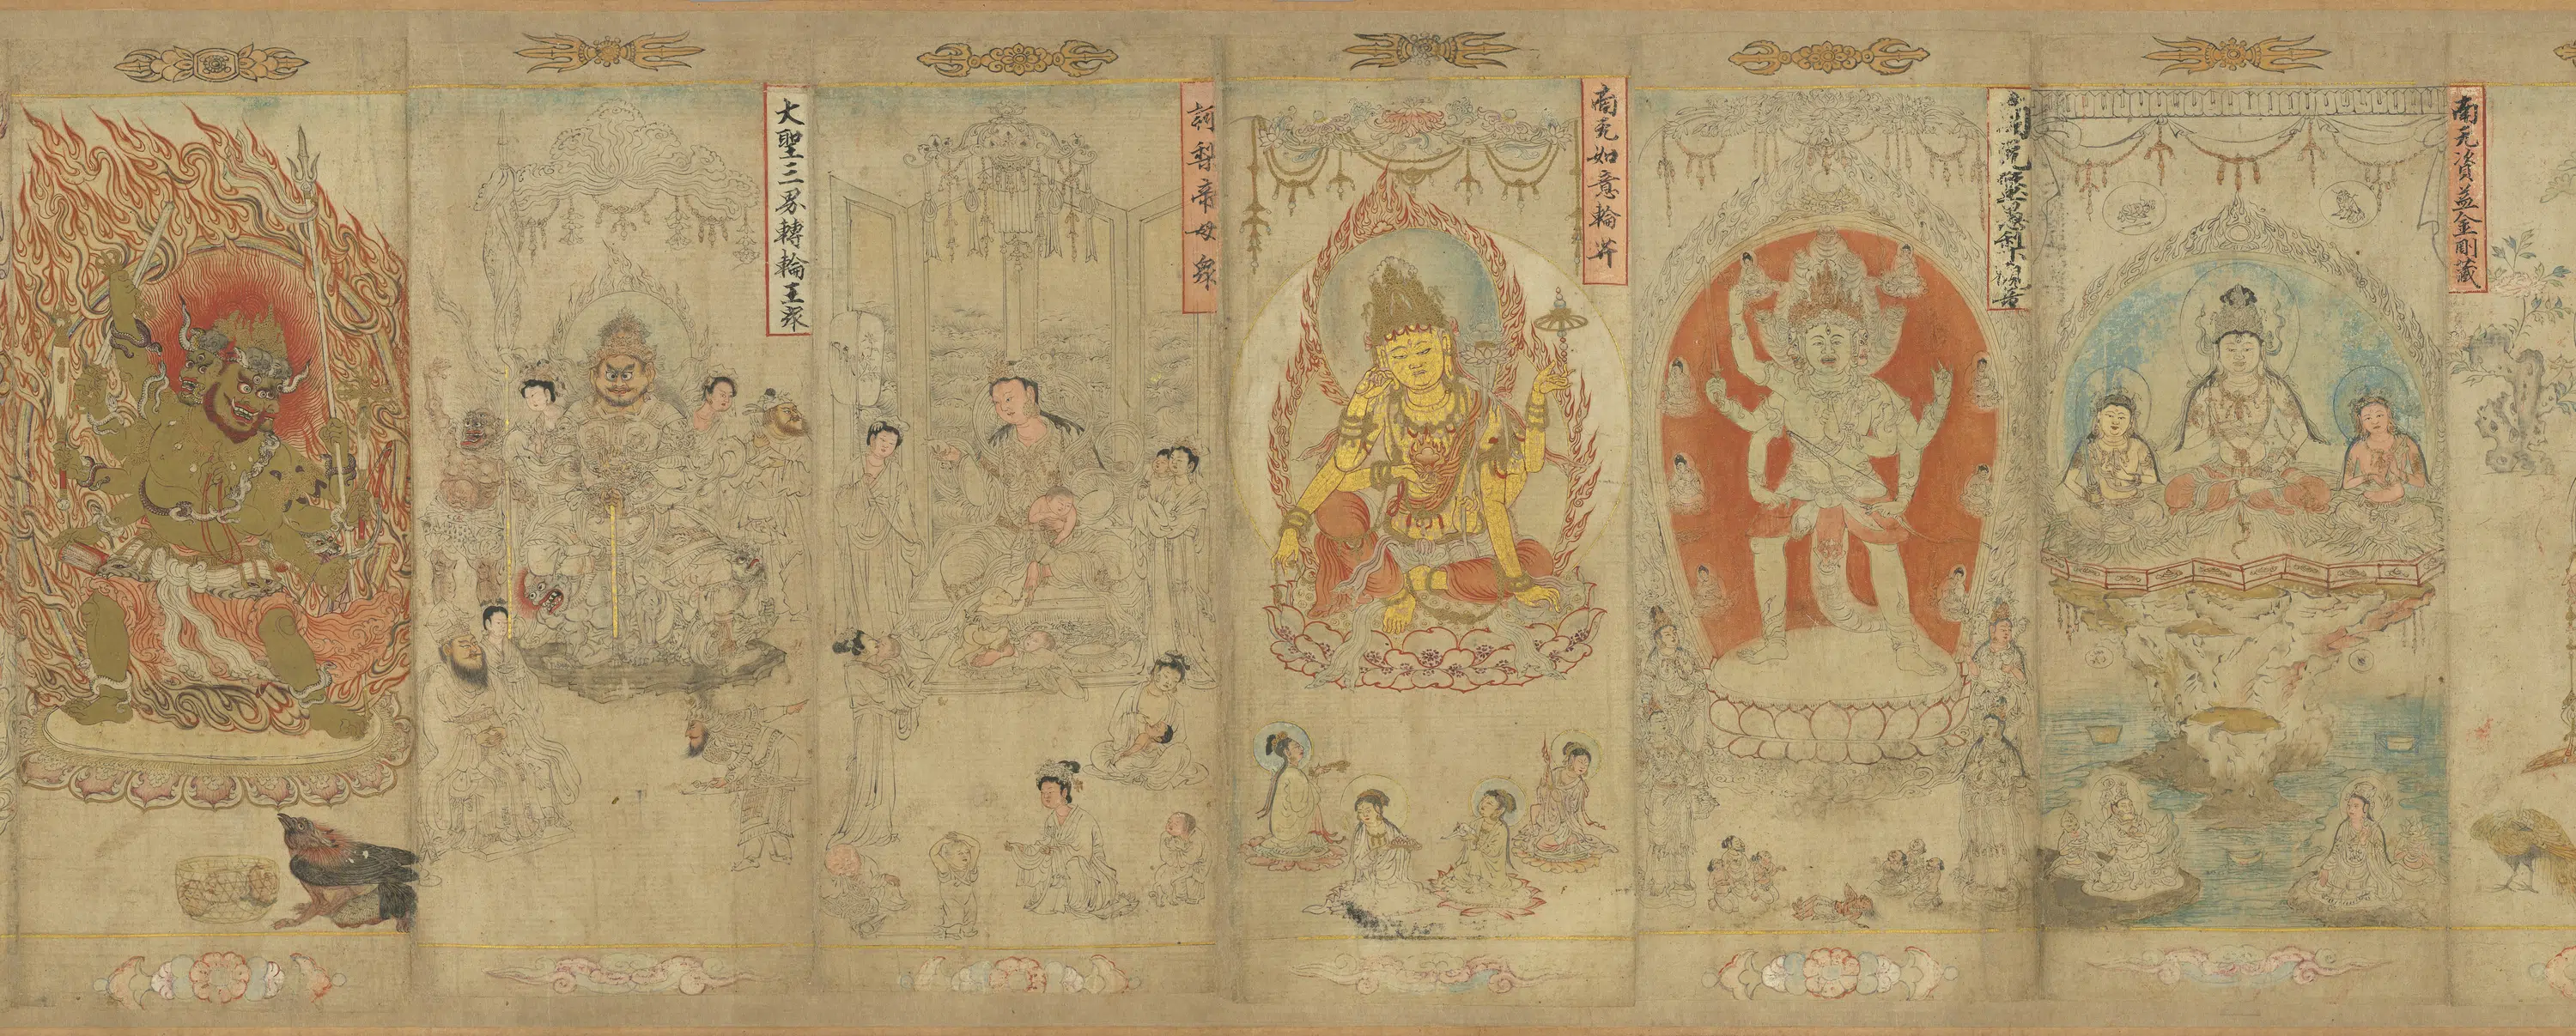 南无資益金剛藏
南无如意輪𦬇
訶梨帝母衆
大聖三界轉輪王衆